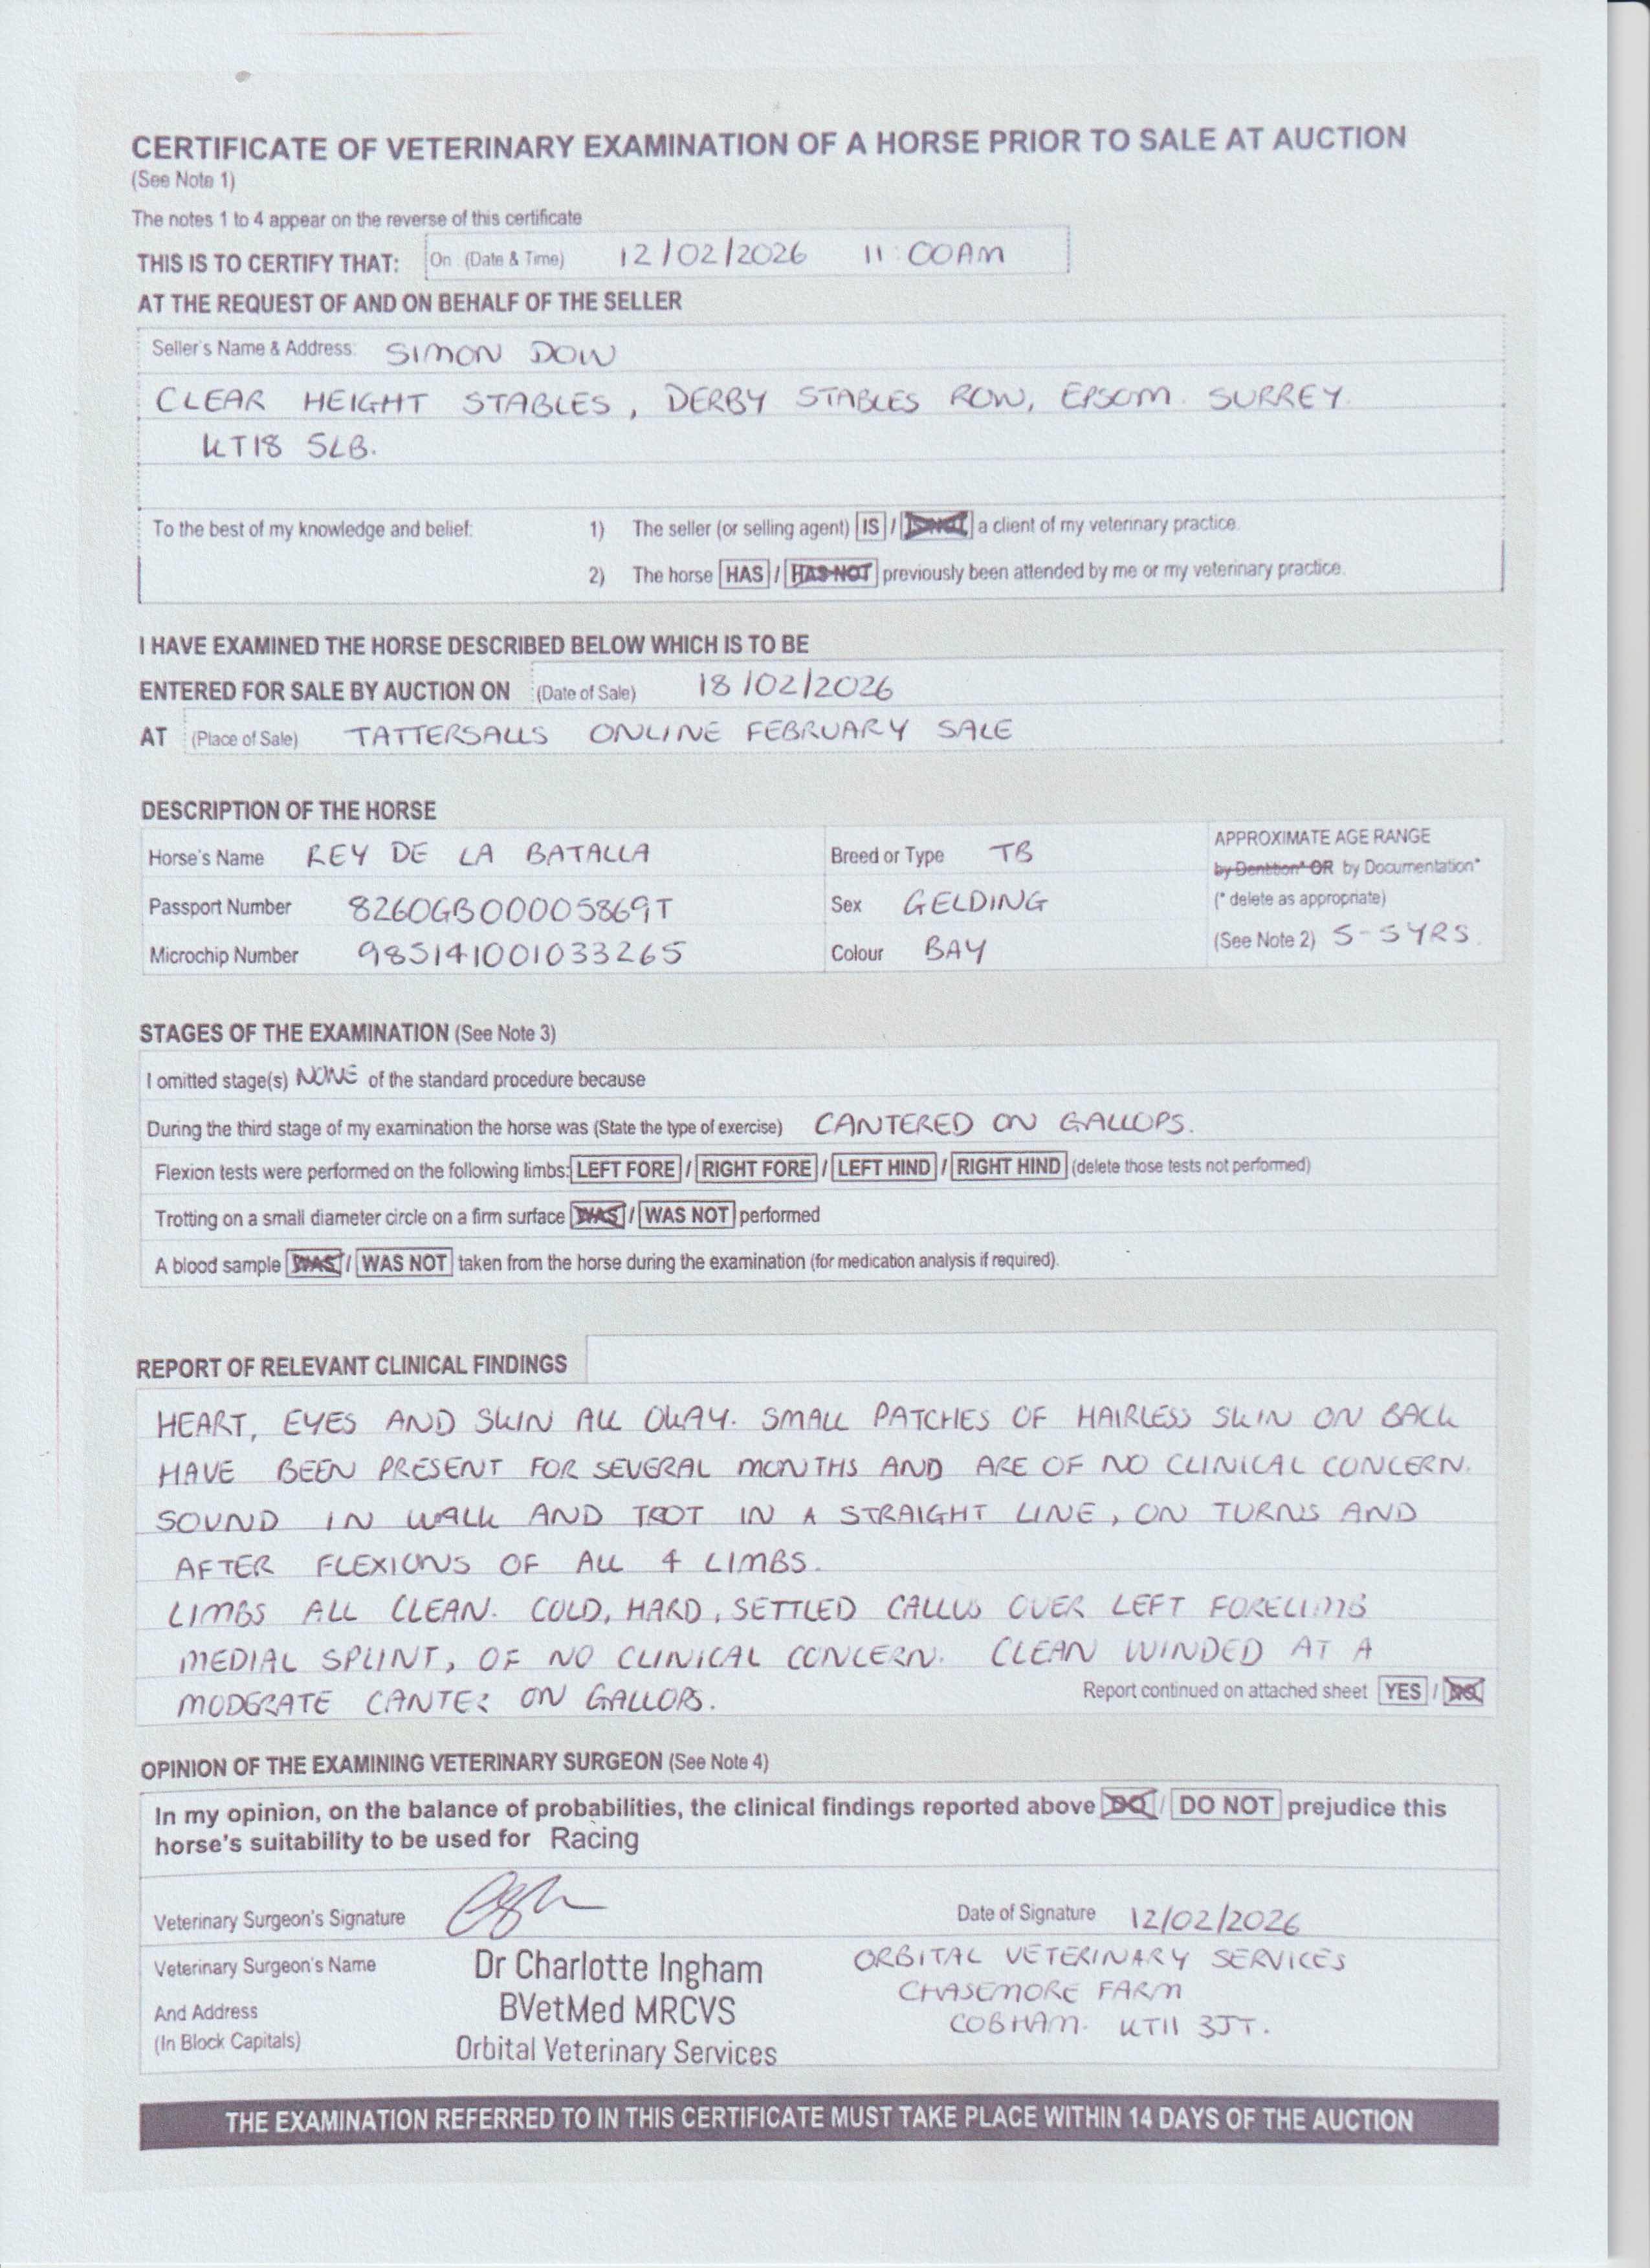 CERTIFICATE OF VETERINARY EXAMINATION OF A HORSE PRIOR TO SALE AT AUCTION
(See Note 1)
The notes 1 to 4 appear on the reverse of this certificate
THIS IS TO CERTIFY THAT: On (Date & Time) 12/02/2026 11:00AM
AT THE REQUEST OF AND ON BEHALF OF THE SELLER
Seller's Name & Address: SIMON DOW
CLEAR HEIGHT STABLES, DERBY STABLES ROW, EPSOM. SURREY.
KT18 5LB.
To the best of my knowledge and belief: 1) The seller (or selling agent) IS / IS NOT a client of my veterinary practice.
2) The horse HAS / HAS NOT previously been attended by me or my veterinary practice.
I HAVE EXAMINED THE HORSE DESCRIBED BELOW WHICH IS TO BE
ENTERED FOR SALE BY AUCTION ON (Date of Sale) 18/02/2026
AT (Place of Sale) TATTERSALLS ONLINE FEBRUARY SALE
DESCRIPTION OF THE HORSE
Horse's Name REY DE LA BATALLA Breed or Type TB APPROXIMATE AGE RANGE
by Dentition* OR by Documentation*
Passport Number 8260GB00005869T Sex GELDING (* delete as appropriate)
Microchip Number 985141001033265 Colour BAY (See Note 2) 5-5YRS.
STAGES OF THE EXAMINATION (See Note 3)
I omitted stage(s) NONE of the standard procedure because
During the third stage of my examination the horse was (State the type of exercise) CANTERED ON GALLOPS.
Flexion tests were performed on the following limbs: LEFT FORE / RIGHT FORE / LEFT HIND / RIGHT HIND (delete those tests not performed)
Trotting on a small diameter circle on a firm surface WAS / WAS NOT performed
A blood sample WAS / WAS NOT taken from the horse during the examination (for medication analysis if required).
REPORT OF RELEVANT CLINICAL FINDINGS
HEART, EYES AND SKIN ALL OKAY. SMALL PATCHES OF HAIRLESS SKIN ON BACK
HAVE BEEN PRESENT FOR SEVERAL MONTHS AND ARE OF NO CLINICAL CONCERN.
SOUND IN WALK AND TROT IN A STRAIGHT LINE, ON TURNS AND
AFTER FLEXIONS OF ALL 4 LIMBS.
LIMBS ALL CLEAN. COLD, HARD, SETTLED CALLUS OVER LEFT FORELIMB
MEDIAL SPLINT, OF NO CLINICAL CONCERN. CLEAN WINDED AT A
MODERATE CANTER ON GALLOPS.
Report continued on attached sheet YES / NO
OPINION OF THE EXAMINING VETERINARY SURGEON (See Note 4)
In my opinion, on the balance of probabilities, the clinical findings reported above DO / DO NOT prejudice this
horse's suitability to be used for Racing
Veterinary Surgeon's Signature Date of Signature 12/02/2026
Veterinary Surgeon's Name Dr Charlotte Ingham ORBITAL VETERINARY SERVICES
And Address BVetMed MRCVS CHASEMORE FARM
(In Block Capitals) Orbital Veterinary Services COBHAM. KT11 3JT.
THE EXAMINATION REFERRED TO IN THIS CERTIFICATE MUST TAKE PLACE WITHIN 14 DAYS OF THE AUCTION